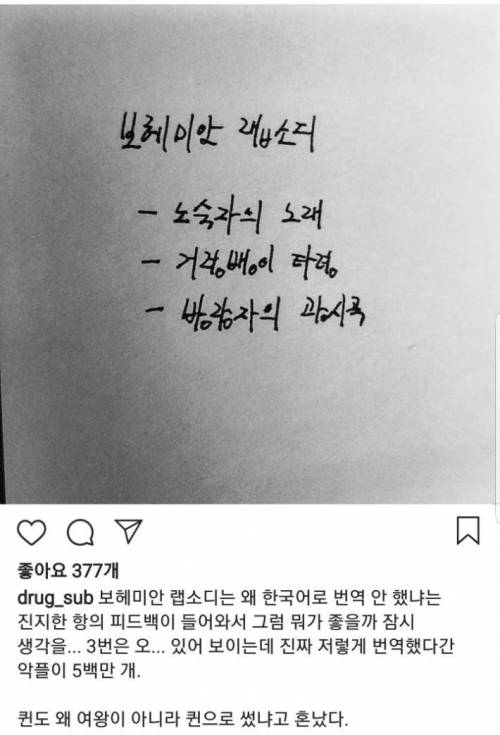 보헤미안 랩소디
- 노숙자의 노래
- 거렁뱅이 타령
- 방랑자의 광시곡
좋아요 377개
drug_sub 보헤미안 랩소디는 왜 한국어로 번역 안 했냐는
진지한 항의 피드백이 들어와서 그럼 뭐가 좋을까 잠시
생각을... 3번은 오... 있어 보이는데 진짜 저렇게 번역했다간
악플이 5백만 개.
퀸도 왜 여왕이 아니라 퀸으로 썼냐고 혼났다.